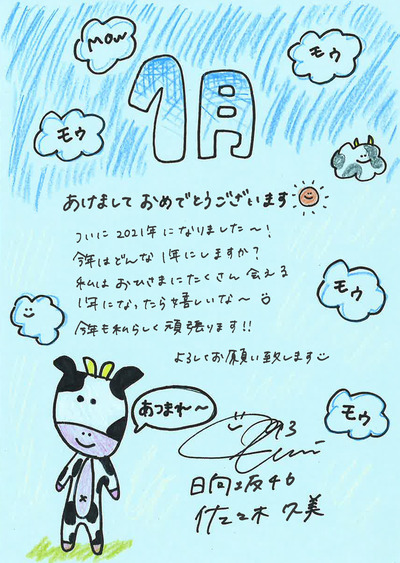 mow
1月
モゥ
モゥ
あけまして おめでとうございます
ついに 2021年 に なりました〜!
今年は どんな 1年に しますか?
私は おひさまに たくさん 会える
1年に なったら 嬉しいな〜
今年も 私らしく 頑張ります!!
よろしく お願い致します
モゥ
モゥ
あつまれ〜
日向坂46
佐々木 久美